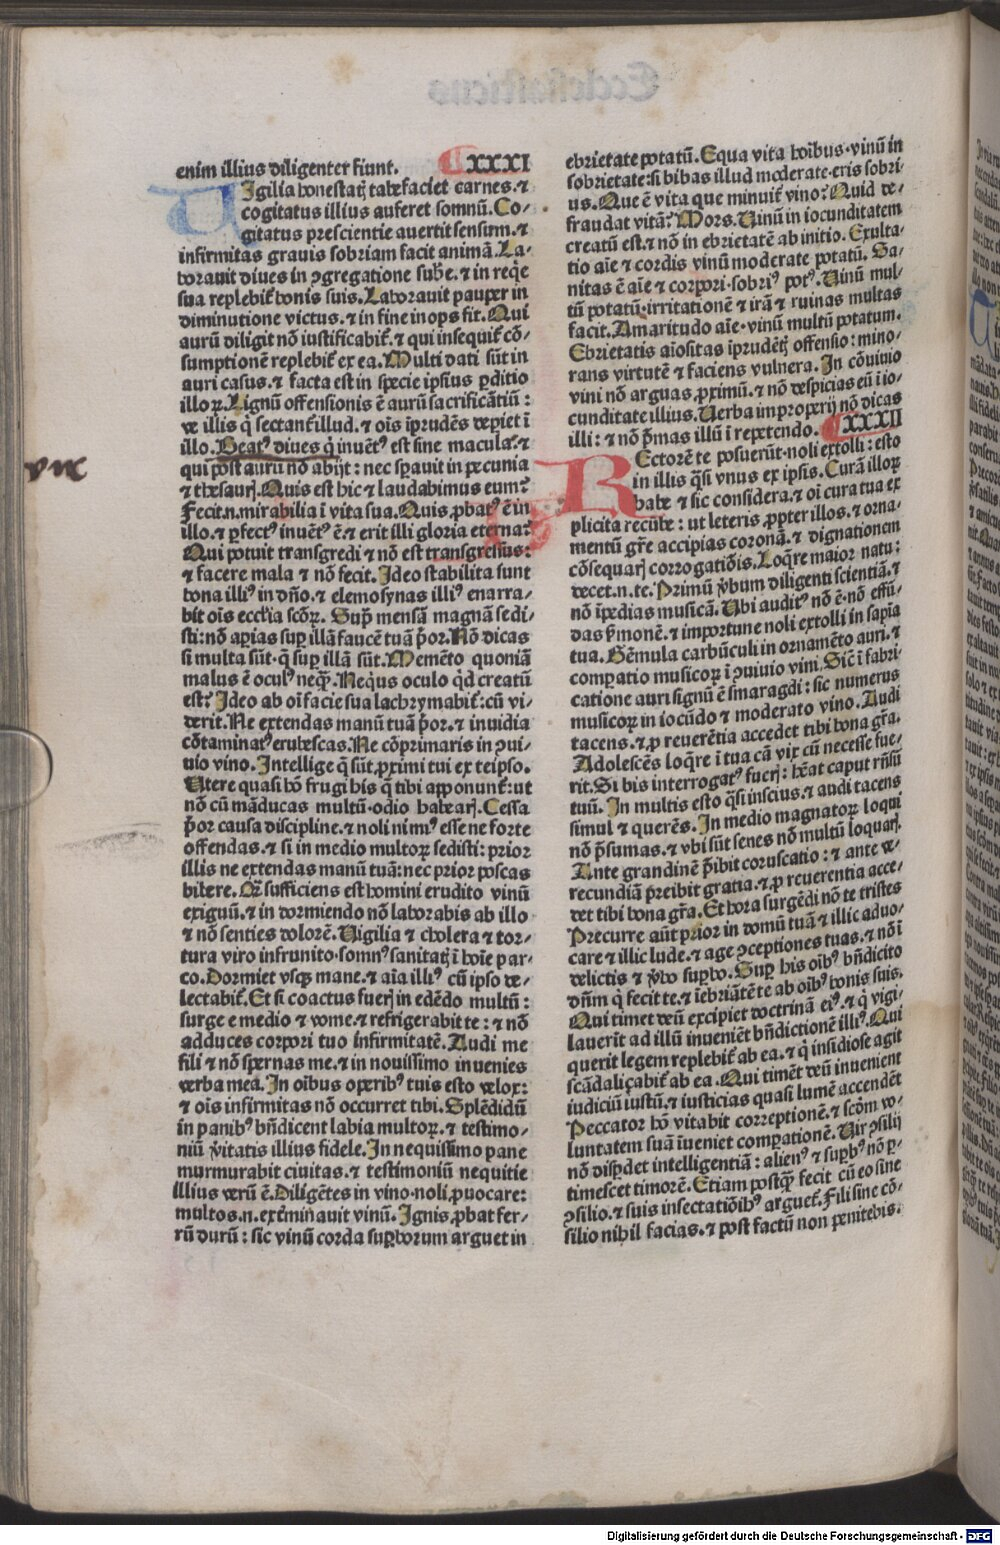 enim illius diligenter fiunt. XXXI
VIgilia honestatꝭ tabefaciet carnes.⁊
cogitatus illius auferet somnū. Co⸗
gitatus prescientie auertit sensum.⁊
infirmitas grauis sobriam facit animā. La⸗
borauit diues in ꝯgregatione subˀe.⁊ in reqͥe
sua replebit᷒ bonis suis. Laborauit pauper in
diminutione victus.⁊ in fine inops fit. Qui
aurū diligit nō iustificabit᷒.⁊ qui insequit᷒ cō⸗
sumptionē replebit᷒ ex ea. Multi dati sūt in
auri casus.⁊ facta est in specie ipsius ꝑditio
illoꝝ. Lignū offensionis ē aurū sacrificātiū:
ve illis qͥ sectant᷒ illud.⁊ ois īprudēs depiet ī
illo. Beatꝰ diues qͥ inuētꝰ est sine macula.⁊
qui post aurū nō abijt: nec spauit in pecunia
⁊ thesaurꝭ. Quis est hic ⁊ laudabimus eum?
Fecit.n.mirabilia ī vita sua. Quis ꝓbatꝰ ē in
illo.⁊ ꝑfectꝰ inuētꝰ ē.⁊ erit illi gloria eterna?
Qui potuit transgredi ⁊ nō est transgressus:
⁊ facere mala ⁊ nō fecit. Ideo stabilita sunt
bona illiꝰ in dño.⁊ elemosynas illiꝰ enarra⸗
bit ois ecclia scōꝝ. Supͣ mensā magnā sedi⸗
sti: nō aꝑias suꝑ illā faucē tuā pͥor. Nō dicas
si multa sūt.qͣ suꝑ illā sūt. Memēto quoniā
malus ē oculꝰ neqͣꝫ. Nequꝰ oculo qd creatū
est? Ideo ab oī facie sua lachrymabit᷒: cū vi⸗
derit. Ne extendas manū tuā pͥor.⁊ inuidia
cōtaminatꝰ erubescas. Ne cōprimaris in ꝯui⸗
uio vino. Intellige qͣ sūt ꝓximi tui ex teipso.
Utere quasi hō frugi his qͣ tibi apponunt᷒: ut
nō cū māducas multū.odio habearꝭ. Cessa
pͥor causa discipline.⁊ noli nimiꝰ esse ne forte
offendas.⁊ si in medio multoꝝ sedisti: prior
illis ne extendas manū tuā: nec prior poscas
bibere. Qͫ sufficiens est homini erudito vinū
exiguū.⁊ in dormiendo nō laborabis ab illo
⁊ nō senties dolorē. Vigilia ⁊ cholera ⁊ tor⸗
tura viro infrunito. somnꝰ sanitatꝭ ī hoīe par⸗
co. Dormiet vsqꝫ mane.⁊ aīa illiꝰ cū ipso de⸗
lectabit᷒. Et si coactus fuerꝭ in edēdo multū:
surge e medio ⁊ vome.⁊ refrigerabit te: ⁊ nō
adduces corpori tuo infirmitatē. Audi me
fili ⁊ nō spernas me.⁊ in nouissimo inuenies
verba mea. In oībus operibꝰ tuis esto velox:
⁊ ois infirmitas nō occurret tibi. Splēdidū
in panibꝰ bn̄dicent labia multoꝝ.⁊ testimo⸗
niū ꝟitatis illius fidele. In nequissimo pane
murmurabit ciuitas.⁊ testimoniū nequitie
illius verū ē. Diligētes in vino.noli ꝓuocare:
multos.n.extīminauit vinū. Ignis ꝓbat fer⸗
rū durū: sic vinū corda suꝑborum arguet in
ebrietate potatū. Equa vita hoībus.vinū in
sobrietate: si bibas illud moderate.eris sobri⸗
us. Que ē vita que minuit᷒ vino? Quid de⸗
fraudat vitā? Mors. Vinū in iocunditatem
creatū est.⁊ nō in ebrietatē ab initio. Exulta⸗
tio aīe ⁊ cordis vinū moderate potatū. Sa⸗
nitas ē aīe ⁊ corpori.sobriꝰ potꝰ. Vinū mul⸗
tū potatū.irritationē ⁊ irā ⁊ ruinas multas
facit. Amaritudo aīe.vinū multū potatum.
Ebrietatis aīositas īprudētꝭ offensio: mino⸗
rans virtutē ⁊ faciens vulnera. In cōuiuio
vini nō arguas ꝓximū.⁊ nō despicias eū ī io⸗
cunditate illius. Verba improperij nō dicas
illi: ⁊ nō pͥmas illū ī repetendo. XXXII
REctorē te posuerūt.noli extolli: esto
in illis qͣsi vnus ex ipsis. Curā illoꝝ
habe ⁊ sic considera.⁊ oī cura tua ex
plicita recūbe: ut leteris ꝓpter illos.⁊ orna⸗
mentū gr̄e accipias coronā.⁊ dignationem
cōsequarꝭ corrogatiōis. Loqͣre maior natu:
decet.n.te. Primū ꝟbum diligenti scientiā.⁊
nō īpedias musicā. Ubi auditꝰ nō ē.nō effū⸗
das ẜmonē.⁊ importune noli extolli in sapīa
tua. Gēmula carbūculi in ornamēto auri.⁊
comꝑatio musicoꝝ ī ꝯuiuio vini. Sic̄ ī fabri⸗
catione auri signū ē smaragdi: sic numerus
musicoꝝ in iocūdo ⁊ moderato vino. Audi
tacens.⁊ ꝓ reuerētia accedet tibi bona gr̄a.
Adolescēs loqͣre ī tua cā vix cū necesse fue⸗
rit. Si bis interrogatꝰ fuerꝭ: hēat caput rn̄sū
tuū. In multis esto qͣsi inscius.⁊ audi tacens
simul ⁊ querēs. In medio magnatoꝝ loqui
nō pͥsumas.⁊ vbi sūt senes nō multū loquarꝭ.
Ante grandinē pͥibit coruscatio: ⁊ ante ve⸗
recundiā pͥreibit gratia.⁊ ꝓ reuerentia acce⸗
det tibi bona gr̄a. Et hora surgēdi nō te tristes
Precurre aūt prior in domū tuā ⁊ illic aduo⸗
care ⁊ illic lude.⁊ age ꝯceptiones tuas.⁊ nō ī
delictis ⁊ ꝟbo suꝑbo. Suꝑ his oībꝰ bn̄dicito
dn̄m qͥ fecit te.⁊ īebriātē te ab oībꝰ bonis suis.
Qui timet deū excipiet doctrinā eiꝰ.⁊ qͥ vigi⸗
lauerit ad illū inueniēt bn̄dictionē illiꝰ. Qui
querit legem replebit᷒ ab ea.⁊ qͥ insidiose agit
scādalicabit᷒ ab ea. Qui timēt deū inuenient
iudiciū iustū.⁊ iusticias quasi lumē accendēt
Peccator hō vitabit correptionē.⁊ scd̄m vo⸗
luntatem suā īueniet comꝑationē. Vir ꝯsilij
nō disꝑdet intelligentiā: alienꝰ ⁊ suꝑbꝰ nō ꝑ⸗
timescet timorē. Etiam postqͣꝫ fecit cū eo sine
ꝯsilio.⁊ suis insectatiōibꝰ arguet᷒. Fili sine cō⸗
silio nihil facias.⁊ post factū non penitebis.
Digitalisierung gefördert durch die Deutsche Forschungsgemeinschaft - DFG